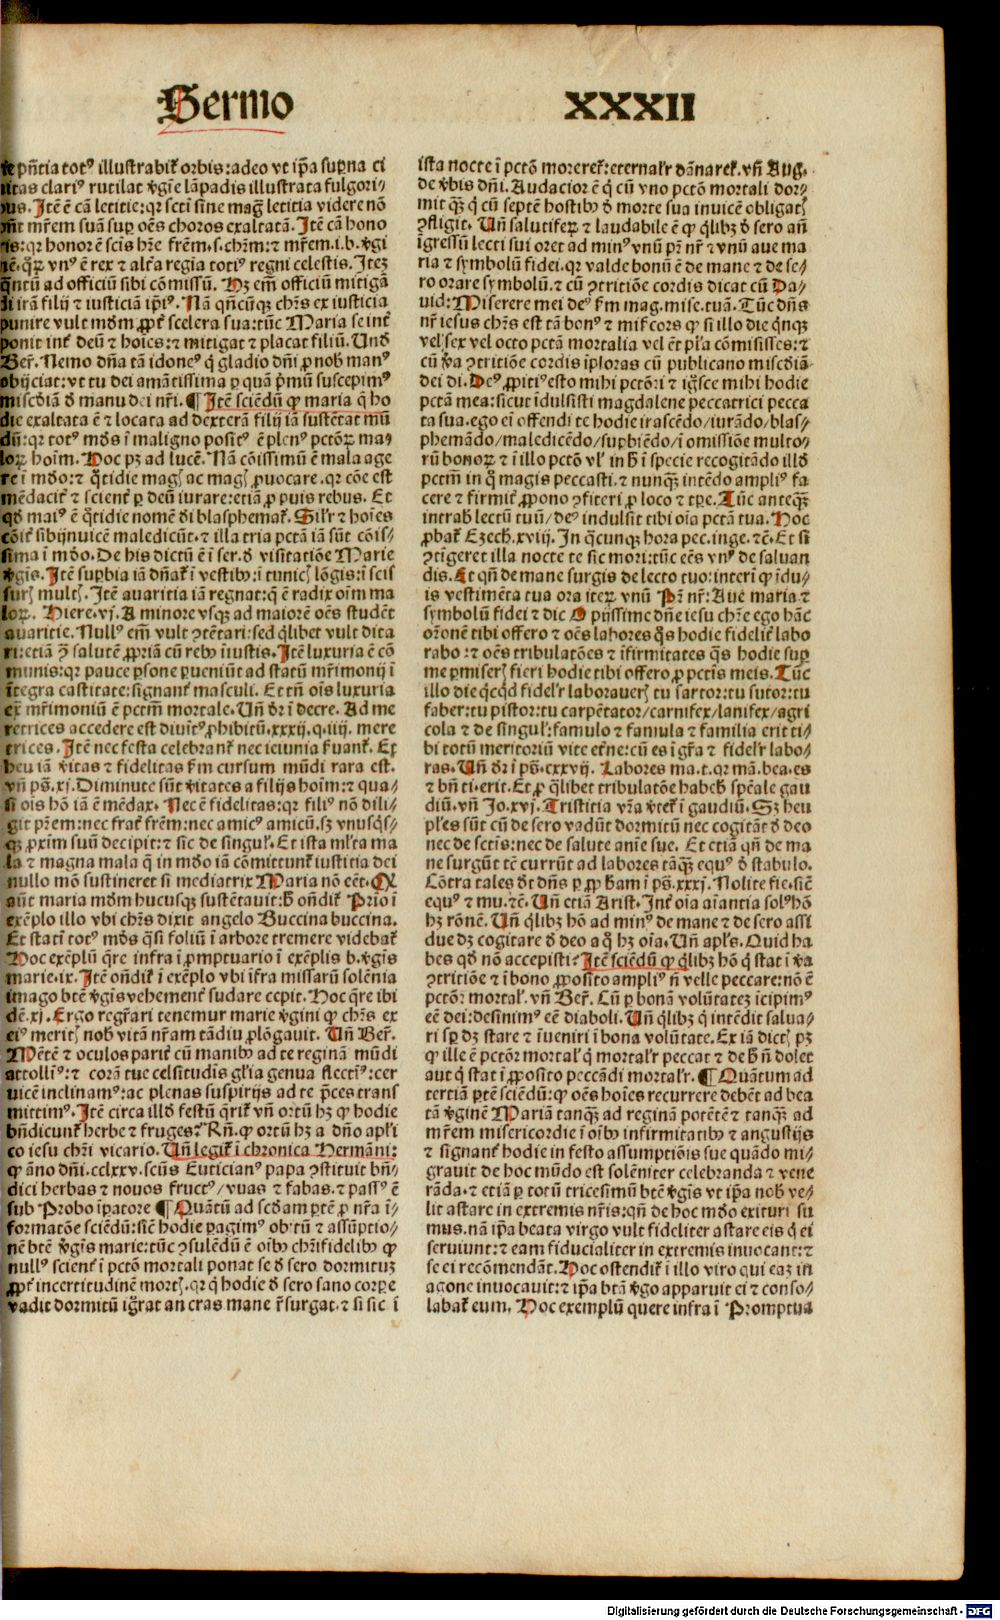 Sermo XXXII
pn̄tia totꝰ illustrabit᷑ orbis: adeo vt ip̄a sup̱na ci
uitas clariꝰ rutilat v̓gīe lāpadis illustrata fulgori⸗
bus. Itē ē cā letitie: qꝛ scti sine mag̅ leticia videre nō
pn̄t mr̄em suā suꝑ oēs choros exaltatā. Itē cā hono
ris: qꝛ honorē scīs hr̄e frēm .s. chr̄m: ⁊ mr̄em .i. b. v̓gi
nē. q̄ꝝ vnꝰ ē rex ⁊ alt̓a regia totiꝰ regni celestis. Itez
q̄ntū ad officiū sibi cōmissū. Hꝫ em̄ officiū mitigā
di irā filij ⁊ iusticiā ip̄iꝰ. Nā qn̄cūqꝫ chr̄s ex iusticia
punire vult mūdm ꝓpt̓ scelera sua: tūc Maria se int̓
ponit int̓ deū ⁊ hoīes: ⁊ mitigat ⁊ placat filiū. Unđ
Ber̄. Nemo dn̄a tā idoneꝰ q̇ gladio dn̄i ꝓ nob̄ manꝰ
obijciat: vt tu dei amātissima ꝑ quā p̄mū suscepimꝰ
misc̄diā đ manu dei nr̄i. ¶ Itē sciēdū ꝙ maria q̄ ho
die exaltata ē ⁊ locata ad dexterā filij iā sustētat mū
dū: qꝛ totꝰ mūdꝰ ī maligno positꝰ ē plenꝰ pctōꝝ ma⸗
loꝝ hoīm. Hoc pꝫ ad lucē. Nā cōissimū ē mala age
re ī mūdo: ⁊ q̄tidie magꝭ ac magꝭ ꝓuocare. qꝛ cōe est
mēdacit̓ ⁊ scient̓ ꝑ deū iurare: etiā ꝓ puis rebus. Et
qđ maiꝰ ē q̄tidie nomē dei blasphemat̓. Sil̓r ⁊ hoīes
cōit̓ sibijnuicē maledicūt. ⁊ illa tria pctā iā sūt cōis⸗
sima ī mūdo. De his dictū ē ī ser. đ visitatiōe Marie
v̓gīs. Itē suꝑbia iā dn̄at̓ ī vestibꝫ: ī tunicꝭ lōgis: ī scis
surꝭ multꝭ. Itē auaritia iā regnat: q̄ ē radix oīm ma
loꝝ. Hiere. vj. A minore vsqꝫ ad maiorē oēs studēt
auaritie. Nullꝰ em̄ vult ꝯtētari: sed q̄libet vult dita
ri: etiā ꝯ̄ salutē ꝓpriā cū rebꝫ īiustis. Itē luxuria ē cō
munis: qꝛ pauce ꝑsone ꝑueniūt ad statū mr̄imonij ī
ītegra castitate: signant̓ masculi. Et tn̄ oīs luxuria
ext̓ mr̄imoniū ē pctm̄ mortale. Un̄ dr̄ ī decre. Ad me
retrices accedere est diuinitꝰ ꝓhibitū. xxxij. q. iiij. mere
trices. Itē nec festa celebrant̓ nec ieiunia ẜuant̓. Et
heu iā v̓itas ⁊ fidelitas ẜm cursum mūdi rara est.
vn̄ pṣ. xj. Diminute sūt v̓itates a filijs hoīm: ⁊ qua⸗
si oīs hō iā ē mēdax. Nec ē fidelitas: qꝛ filiꝰ nō dili⸗
git pr̄em: nec frat̓ frēm: nec amicꝰ amicū. sꝫ vnusq̇s⸗
qꝫ ꝓxim suū decipit: ⁊ sic de singul̓. Et ista ml̓ta ma
la ⁊ magna mala q̄ in mūdo iā cōmittunt̓ iustitia dei
nullo mō sustineret si mediatrix Maria nō eēt. Q̇
aūt maria mūdm hucusqꝫ sustētauit: h̄ on̄dit̓ Prīo ī
exēplo illo vbi chr̄s dixit angelo Buccina buccina.
Et statī totꝰ mūdꝰ q̄si foliū ī arbore tremere videbat̓
Hoc exēplū q̄re infra ī promptuario ī exēplis b. v̓gīs
marie. ix. Itē on̄dit̓ ī exēplo vbi īfra missarū solēnia
imago btē v̓gīs vehement̓ sudare cepit. Hoc q̄re ibi
dē. xj. Ergo regr̄ari tenemur marie v̓gini ꝙ chr̄s ex
eiꝰ meritꝭ nob̄ vitā nr̄am tādiu ꝓlōgauit. Un̄ Ber̄.
Mētē ⁊ oculos parit̓ cū manibꝫ ad te reginā mūdi
attollimꝰ: ⁊ corā tue celsitudis gl̓ia genua flectimꝰ: cer
uicē inclinamꝰ: ac plenas suspirijs ad te p̄ces trans
mittimꝰ. Itē circa illđ festū q̄rit̓ vn̄ ortū hꝫ ꝙ hodie
bn̄dicunt̓ herbe ⁊ fruges? Rn̄. ꝙ ortū hꝫ a dn̄o apl̓i
co iesu chr̄i vicario. Un̄ legit̓ ī chronica Hermāni:
ꝙ āno dn̄i. cclxxv. scūs Euticianꝰ papa ꝯstituit bn̄⸗
dici herbas ⁊ nouos fructꝰ / vuas ⁊ fabas. ⁊ passꝰ ē
sub Probo īꝑatore ¶ Quātū ad scdam ꝑtē ꝓ nr̄a ī⸗
formatōe sciēdū: sicē hodie ꝑagimꝰ obitū ⁊ assūptio⸗
nē btē v̓gīs marie: tūc ꝯsulēdū ē oībꝫ chr̄ifidelibꝫ ꝙ
nullꝰ scient̓ ī pctō mortali ponat se đ sero dormituꝫ
ꝓpt̓ incertitudinē mortꝭ. qꝛ q̇ hodie đ sero sano corꝑe
vadit dormitū ig̅rat an cras mane r̓surgat. ⁊ si sic ī
ista nocte ī pctō moreret̓: eternal̓r dānaret̓. vn̄ Aug.
de v̓bis dn̄i. Audacior ē q̇ cū vno pctō mortali dor⸗
mit qꝫ q̇ cū septē hostibꝫ đ morte sua inuicē obligatꝭ
ꝯfligit. Un̄ salutifeꝝ ⁊ laudabile ē ꝙ q̄libꝫ đ sero an̄
īgressū lecti sui oret ad minꝰ vnū pr̄ nr̄ ⁊ vnū aue ma
ria ⁊ symbolū fidei. qꝛ valde bonū ē de mane ⁊ de se⸗
ro orare symbolū. ⁊ cū ꝯtritiōe cordis dicat cū Da⸗
uid: Miserere mei deꝰ ẜm mag. mise. tuā. Tūc dn̄s
nr̄ iesus chr̄s est tā bonꝰ ⁊ mi̓cors ꝙ si illo die q̇nqꝫ
vel sex vel octo pctā mortalia vel ēt pl̓a cōmisisses: ⁊
cū v̓a ꝯtritiōe cordis īploras cū publicano misc̄diā
dei di. Deꝰ ꝓpitiꝰ esto mihi pctōri ⁊ ig̅sce mihi hodie
pctā mea: sicut īdulsisti magdalene peccatrici pecca
ta sua. ego ei offendi te hodie irascēdo / iurādo / blas⸗
phemādo / maledicēdo / suꝑbiēdo / ī omissiōe multo⸗
rū bonoꝝ ⁊ ī illo pctō vl̓ in h̄ ī specie recogitādo illđ
pctm̄ in q̇ magis peccasti. ⁊ nunqꝫ intēdo ampliꝰ fa
cere ⁊ firmit̓ ꝓpono ꝯfiteri ꝓ loco ⁊ tꝑe. Tūc anteqꝫ
intrabis lectū tuū / deꝰ indulsit tibi oīa pctā tua. Hoc
ꝓbat̓ Ezech. xviij. In q̄cunqꝫ hora pec. inge. ⁊c̄. Et si
ꝯtigeret illa nocte te sic mori: tūc eēs vnꝰ de saluan
dis. Et qn̄ de mane surgis de lecto tuo: interī ꝙ īdu⸗
is vestimēta tua ora iteꝝ vnū Pr̄ nr̄: Aue maria ⁊
symbolū fidei ⁊ dic O pijssime dn̄e iesu chr̄e ego hāc
or̄onē tibi offero ⁊ oēs labores q̇s hodie fidelit̓ labo
rabo: ⁊ oēs tribulatōes ⁊ īfirmitates q̇s hodie suꝑ
me ꝑmiserꝭ fieri hodie tibi offero ꝓ pctīs meis. Tūc
illo die q̇cqđ fidel̓r laborauerꝭ tu sartor: tu sutor: tu
faber: tu pistor: tu carpētator / carnifex / lanifex / agri
cola ⁊ de singul̓: famulo ⁊ famula ⁊ familia erit ti⸗
bi totū meritoriū vite et̓ne: cū es ī gr̄a ⁊ fidel̓r labo⸗
ras. Un̄ dr̄ ī pṣ. cxxvij. Labores ma. t. qꝛ mā. bea. es
⁊ bn̄ ti. erit. Et ꝓ q̄libet tribulatōe habebꝭ sp̄cale gau
diū. vn̄ Jo. xvj. Tristicia vr̄a v̓tet̓ ī gaudiū. Sꝫ heu
pl̓es sūt cū de sero vadūt dormitū nec cogitāt đ deo
nec de sctīs: nec de salute aīe sue. Et etiā qn̄ de ma
ne surgūt tē currūt ad labores tāqꝫ equꝰ đ stabulo.
Cōtra tales đt dn̄s ꝑ ꝓph̄am ī pṣ. xxxj. Nolite fie. sicē
equꝰ ⁊ mu. ⁊c̄. Un̄ etiā Arist. Int̓ oīa aīantia solꝰ hō
hꝫ rōnē. Un̄ q̄libꝫ hō ad minꝰ de mane ⁊ de sero assi
due dꝫ cogitare đ deo a q̇ hꝫ oīa. Un̄ apl̓s. Quid ha
bes qđ nō accepisti? Itē sciēdū ꝙ q̄libꝫ hō q̇ stat ī v̓a
ꝯtritiōe ⁊ ī bono ꝓposito ampliꝰ n̄ velle peccare: nō ē
pctōr mortal̓. vn̄ Ber̄. Cū ꝑ bonā volūtatez īcipimꝰ
eē dei: desinimꝰ eē diaboli. Un̄ q̄libꝫ q̇ intēdit salua⸗
ri sꝑ dꝫ stare ⁊ īueniri ī bona volūtate. Ex iā dictꝭ pꝫ
ꝙ ille ē pctōr mortal̓ q̇ mortal̓r peccat ⁊ de h̄ n̄ dolet
aut q̇ stat ī ꝓposito peccādi mortal̓r. ¶ Quātum ad
tertiā ꝑtē sciēdū: ꝙ oēs hoīes recurrere debēt ad bea
tā v̓ginē Mariā tanqꝫ ad reginā potētē ⁊ tanqꝫ ad
mr̄em misericordie ī oībꝫ infirmitatibꝫ ⁊ angustijs
⁊ signant̓ hodie in festo assumptiōis sue quādo mi⸗
grauit de hoc mūdo est solēniter celebranda ⁊ vene
rāda. ⁊ etiā ꝑ totū tricesimū btē v̓gīs vt ip̄a nob̄ ve⸗
lit astare in extremis nr̄is: qn̄ de hoc mūdo exituri su
mus. nā ip̄a beata virgo vult fideliter astare eis q̇ ei
seruiunt: ⁊ eam fiducialiter in extremis inuocant: ⁊
se ei recōmendāt. Hoc ostendit̓ ī illo viro qui eaz in
agone inuocauit: ⁊ ip̄a btā v̓go apparuit ei ⁊ conso⸗
labat̓ eum. Hoc exemplū quere infra ī Promptua
Digitalisierung gefördert durch die Deutsche Forschungsgemeinschaft - DFG